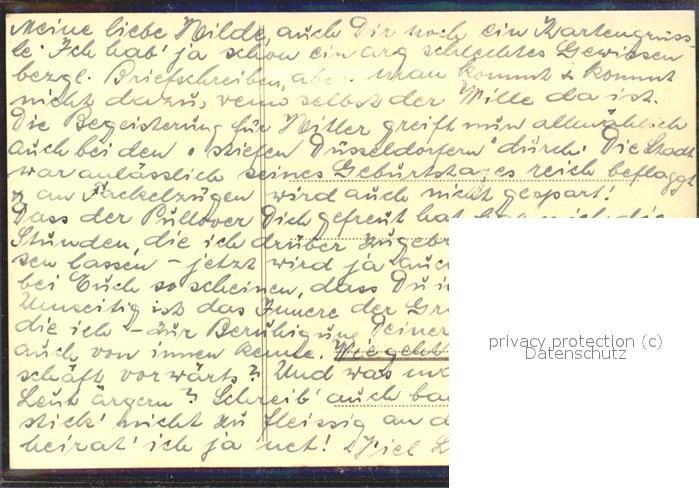 Meine liebe Hilde, auch Dir noch ein Kartengrüss-
le. Ich hab' ja schon ein arg schlechtes Gewissen
bezgl. Briefschreiben, aber man kommt & kommt
nicht dazu, wenn selbst der Wille da ist.
Die Begeisterung für Hitler greift nun allmählich
auch bei den "steifen Düsseldorfern" durch. Die Stadt
war anlässlich seines Geburtstages reich beflaggt
& an Fackelzügen wird auch nicht gespart!
Dass der Pullover Dich gefreut hat
Stunden, die ich drüber zugebr
sen lassen - jetzt wird ja auch
bei Euch so scheinen, dass Du i
Umseitig ist das Innere der Gr
die ich - zur Beruhigung Deiner
auch von innen kenne. Wie geht
schäft vorwärts? Und was ma
Leut ärgern? Schreib' auch ba
stick' nicht zu fleissig an d
heirat' ich ja net! Viel L
privacy protection (c)
Datenschutz